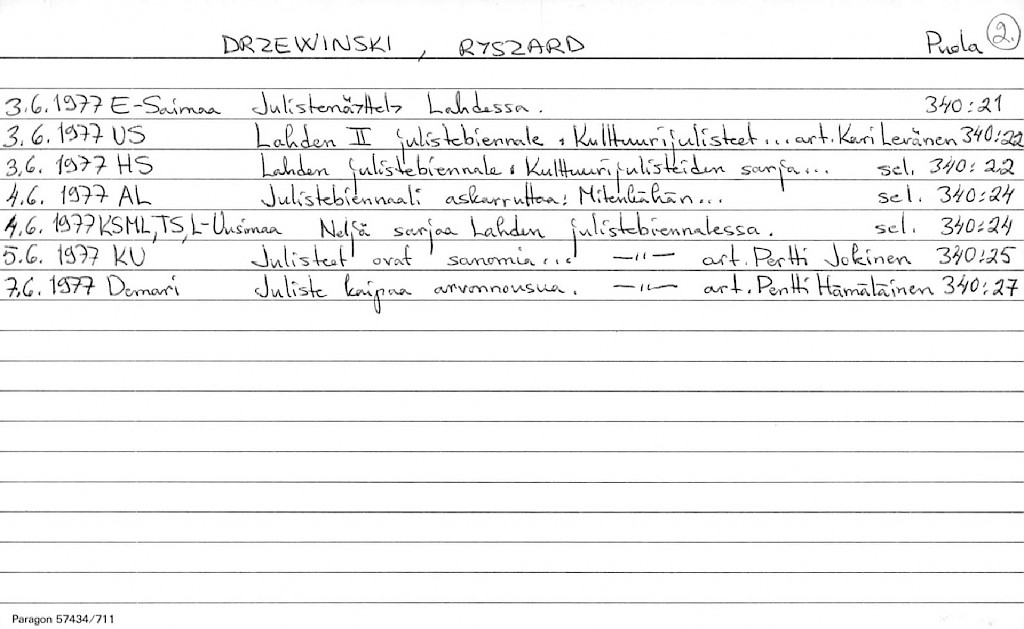 DRZEWINSKI, RYSZARD Puola 2.
3.6.1977 E-Saimaa Julistenäyttely Lahdessa. 340:21
3.6.1977 US Lahden II julistebiennale : Kulttuurijulisteet... art. Kari Levänen 340:22
3.6.1977 HS Lahden julistebiennale : Kulttuurijulisteiden sarja... sel. 340:22
4.6.1977 AL Julistebiennaali askarruttaa: Mitenkähän... sel. 340:24
4.6.1977 KSML, TS, L-Uusimaa Neljä sarjaa Lahden julistebiennalessa. sel. 340:24
5.6.1977 KU Julisteet ovat sanomia... —"— art. Pertti Jokinen 340:25
7.6.1977 Demari Juliste kaipaa arvonnousua. —"— art. Pentti Hämäläinen 340:27
Paragon 57434/711